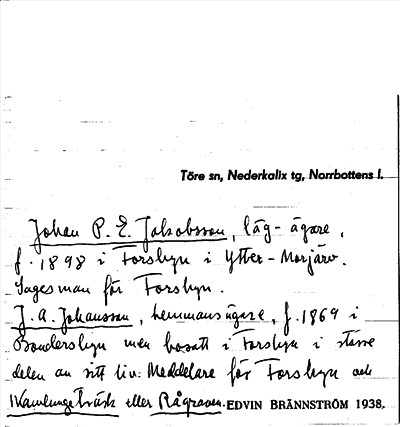 Töre sn, Nederkalix tg, Norrbottens l.
Johan P. E. Jakobsson, läg-ägare,
f. 1898 i Forsbyn i Ytter-Morjärv.
Sagesman för Forsbyn.
J. A. Johansson, hemmansägare, f. 1869 i
Bondersbyn men bosatt i Forsbyn i större
delen av sitt liv: Meddelare för Forsbyn och
Kamlungeträsk eller Rågraven. EDVIN BRÄNNSTRÖM 1938.